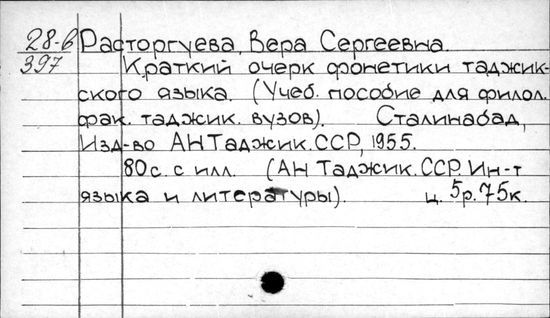 28-6 Расторгуева, Вера Сергеевна.
397 Краткий очерк фонетики таджик-
ского языка. (Учеб. пособие для филол.
фак. таджик. вузов). Сталинабад,
Изд-во АН Таджик. ССР, 1955.
80 с. с илл. (АН Таджик. ССР. Ин-т
языка и литературы). ц. 5р. 75к.